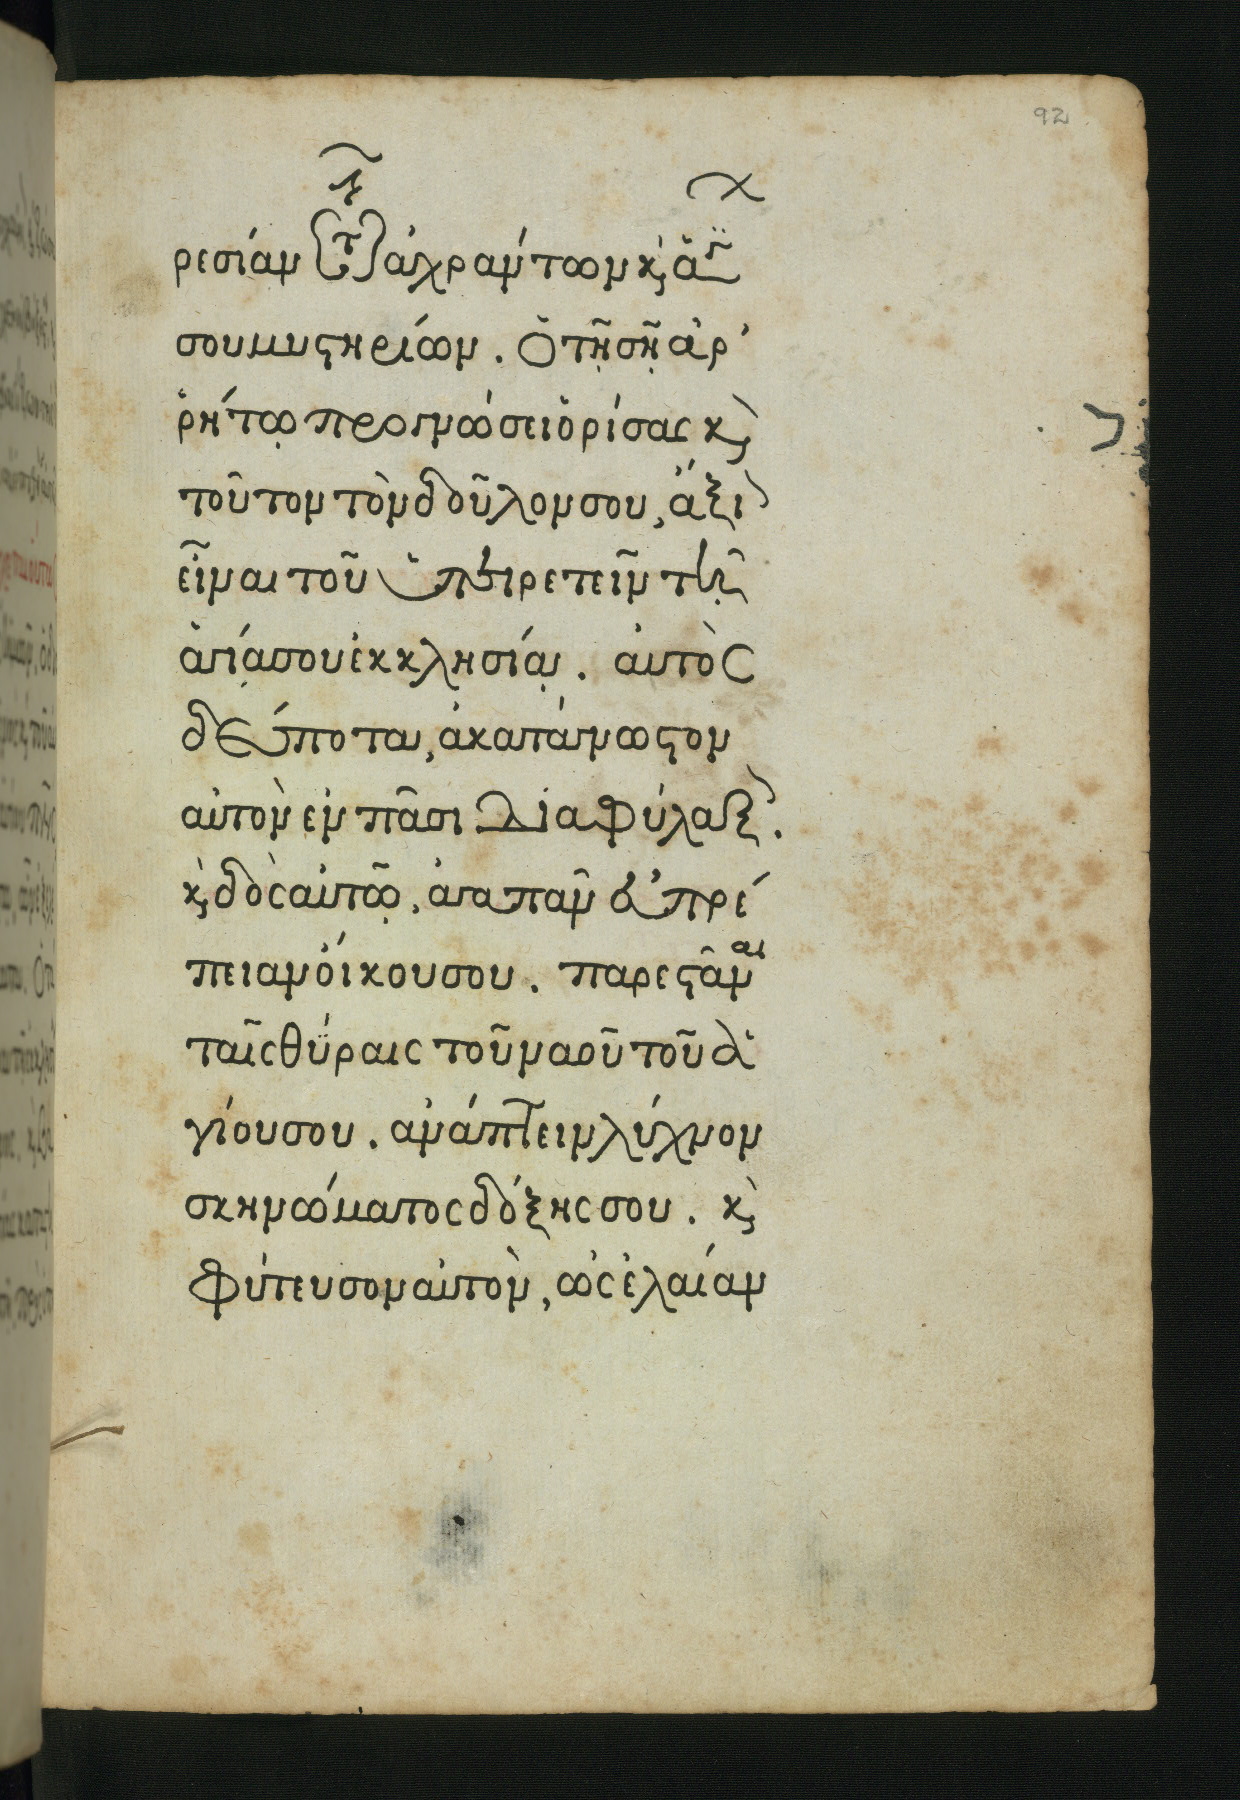 92
ρεσίαν τῶν ἀχράντων κ̀ ἁγίων
σου μυστηρίων. Ὁ τῇ σῇ ἀρ
ρήτῳ προγνώσει ὁρίσας κ̀
τοῦτον τὸν δοῦλον σου, ἄξι
εῖναι τοῦ ὑπηρετεῖν τῇ
ἁγίᾳ σου ἐκκλησίᾳ. αὐτὸς
δέσποτα, ἀκατάγνωστον
αὐτὸν ἐν πᾶσι διαφύλαξ.
κ̀ δὸς αὐτῷ, ἀγαπᾶν εὐπρέ
πειαν οἴκου σου. παρεστᾶναι
ταῖς θύραις τοῦ ναοῦ τοῦ ἁ
γίου σου. ἀνάπτειν λύχνον
σκηνώματος δόξης σου. κ̀
φύτευσον αὐτὸν, ὡς ἐλαίαν